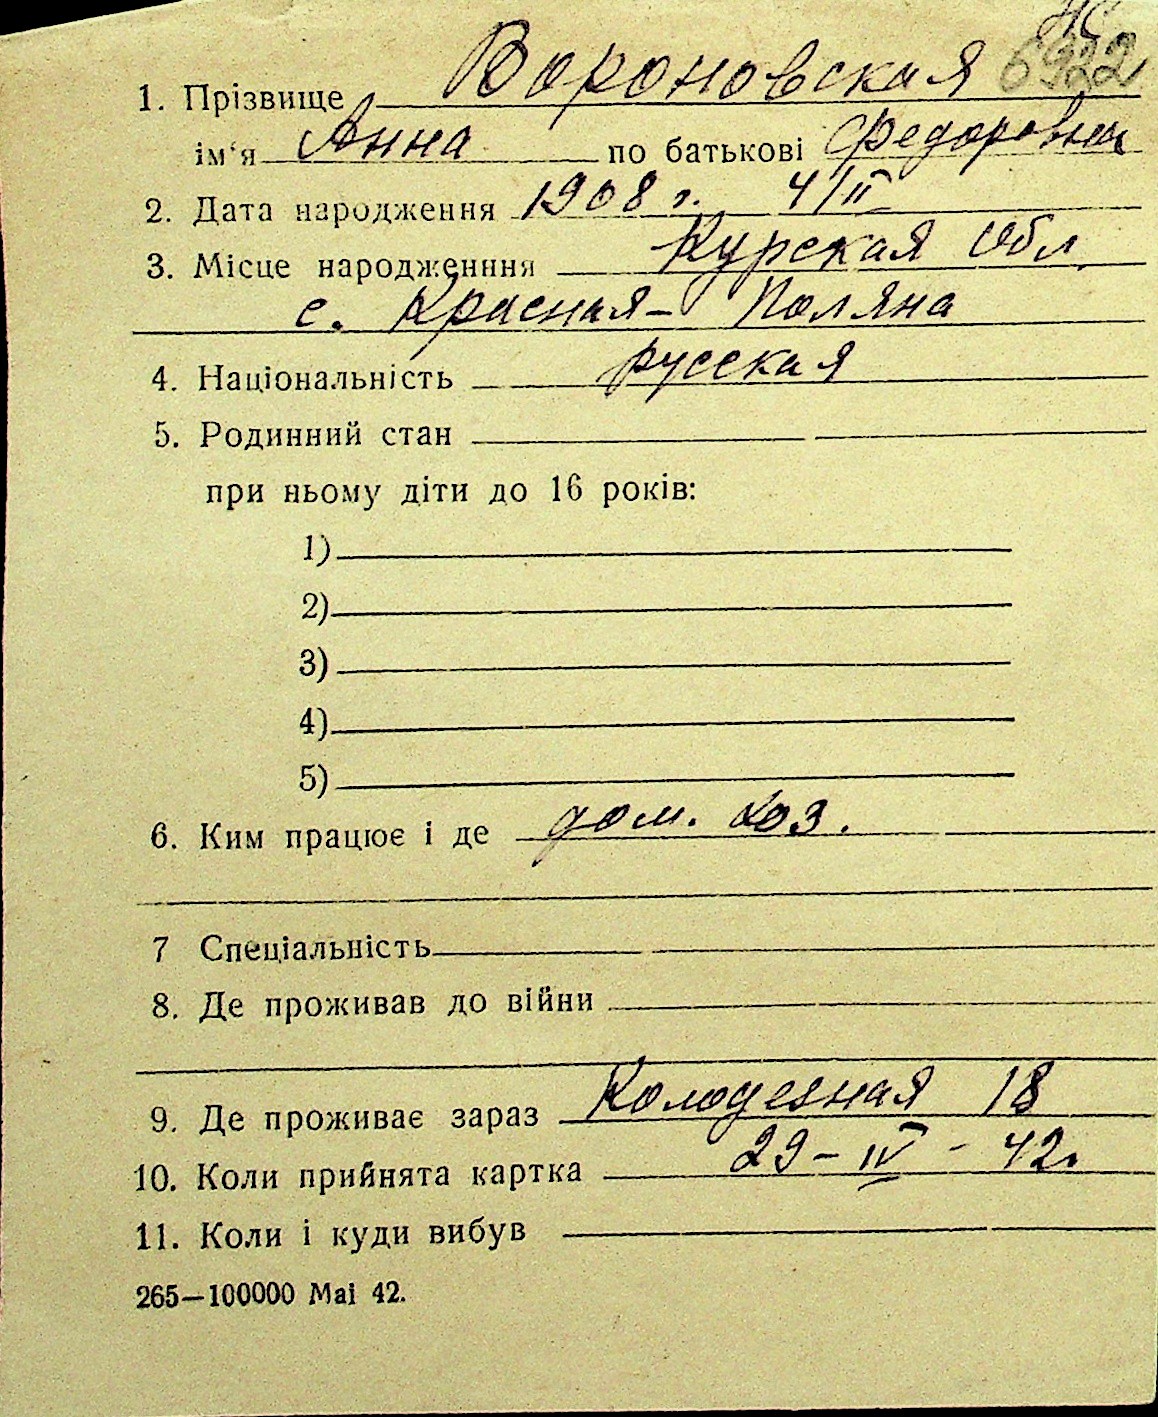 НС
6922
1. Прізвище Вороновская
ім'я Анна по батькові Федоровна
2. Дата народження 1908 г. 4/II
3. Місце народженння Курская обл.
с. Красная-Поляна
4. Національність русская
5. Родинний стан
при ньому діти до 16 років:
1)
2)
3)
4)
5)
6. Ким працює і де дом. хоз.
7 Спеціальність
8. Де проживав до війни
9. Де проживає зараз Колодезная 18
10. Коли прийнята картка 29-IV-42г
11. Коли і куди вибув
265—100000 Маі 42.